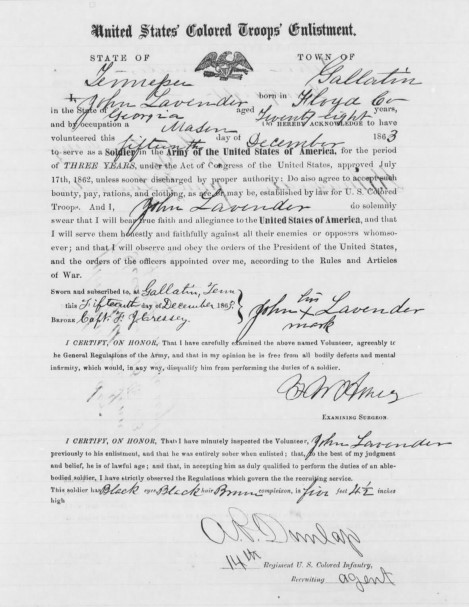 United States' Colored Troops' Enlistment.
STATE OF TOWN OF
Tennessee Gallatin
I, John Lavender born in Floyd Co
in the State of Georgia aged Twenty Eight years,
and by occupation a Mason DO HEREBY ACKNOWLEDGE to have
volunteered this fifteenth day of December 1863
to serve as a Soldier in the Army of the United States of America, for the period
of THREE YEARS, under the Act of Congress of the United States, approved July
17th, 1862, unless sooner discharged by proper authority: Do also agree to accept such
bounty, pay, rations, and clothing, as are, or may be, established by law for U. S. Colored
Troops. And I, John Lavender do solemnly
swear that I will bear true faith and allegiance to the United States of America, and that
I will serve them honestly and faithfully against all their enemies or opposers whomso-
ever; and that I will observe and obey the orders of the President of the United States,
and the orders of the officers appointed over me, according to the Rules and Articles
of War.
Sworn and subscribed to, at Gallatin, Tenn
this Fifteenth day of December 1863.
Before Capt. F. J. Cressey
his
John x Lavender
mark
I CERTIFY, ON HONOR, That I have carefully examined the above named Volunteer, agreeably to
the General Regulations of the Army, and that in my opinion he is free from all bodily defects and mental
infirmity, which would, in any way, disqualify him from performing the duties of a soldier.
EXAMINING SURGEON.
I CERTIFY, ON HONOR, That I have minutely inspected the Volunteer, John Lavender
previously to his enlistment, and that he was entirely sober when enlisted; that, to the best of my judgment
and belief, he is of lawful age; and that, in accepting him as duly qualified to perform the duties of an able-
bodied soldier, I have strictly observed the Regulations which govern the the recruiting service.
This soldier has Black eyes Black hair Brown complexion, is five feet 4½ inches
high
A. P. Dunlap
14th Regiment U. S. Colored Infantry,
Recruiting agent